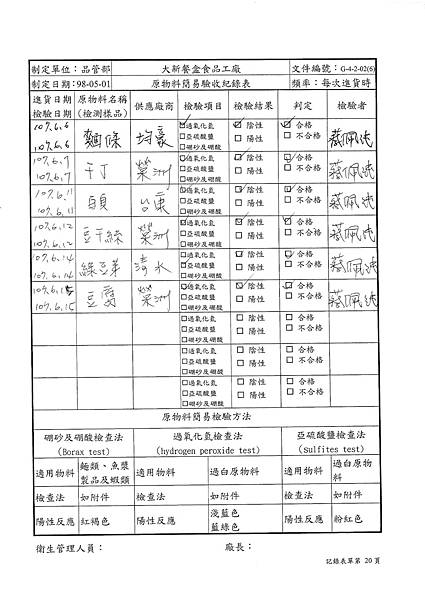 制定單位：品管部 大新餐盒食品工廠 文件編號：G-4-2-02(6)
制定日期:98-05-01 原物料簡易驗收紀錄表 頻率：每次進貨時
進貨日期 檢驗日期 原物料名稱 (檢測樣品) 供應廠商 檢驗項目 檢驗結果 判定 檢驗者
107.6.6 麵條 ☑過氧化氫 ☑陰性 ☑合格
107.6.6 □亞硫酸鹽 □陽性 □不合格 蔡佩
□硼砂及硼酸
107.6.7 干丁 榮洲 ☑過氧化氫 ☑陰性 ☑合格
107.6.7 □亞硫酸鹽 □陽性 □不合格 蔡佩
□硼砂及硼酸
107.6.11 ☑過氧化氫 ☑陰性 ☑合格
107.6.11 □亞硫酸鹽 □陽性 □不合格 蔡佩
□硼砂及硼酸
107.6.12 豆干絲 榮洲 ☑過氧化氫 ☑陰性 ☑合格
107.6.12 □亞硫酸鹽 □陽性 □不合格 蔡佩
□硼砂及硼酸
107.6.14 綠豆芽 清水 ☑過氧化氫 ☑陰性 ☑合格
107.6.14 □亞硫酸鹽 □陽性 □不合格 蔡佩
□硼砂及硼酸
107.6.15 豆腐 榮洲 ☑過氧化氫 ☑陰性 ☑合格
107.6.15 □亞硫酸鹽 □陽性 □不合格 蔡佩
□硼砂及硼酸
□過氧化氫 □陰性 □合格
□亞硫酸鹽 □陽性 □不合格
□硼砂及硼酸
□過氧化氫 □陰性 □合格
□亞硫酸鹽 □陽性 □不合格
□硼砂及硼酸
□過氧化氫 □陰性 □合格
□亞硫酸鹽 □陽性 □不合格
□硼砂及硼酸
原物料簡易檢驗方法
硼砂及硼酸檢查法 過氧化氫檢查法 亞硫酸鹽檢查法
(Borax test) (hydrogen peroxide test) (Sulfites test)
適用物料 麵類、魚漿製品及蝦類 適用物料 過白原物料 適用物料 過白原物料
檢查法 如附件 檢查法 如附件 檢查法 如附件
陽性反應 紅褐色 陽性反應 淺藍色 藍綠色 陽性反應 粉紅色
衛生管理人員： 廠長：
記錄表單第 20 頁